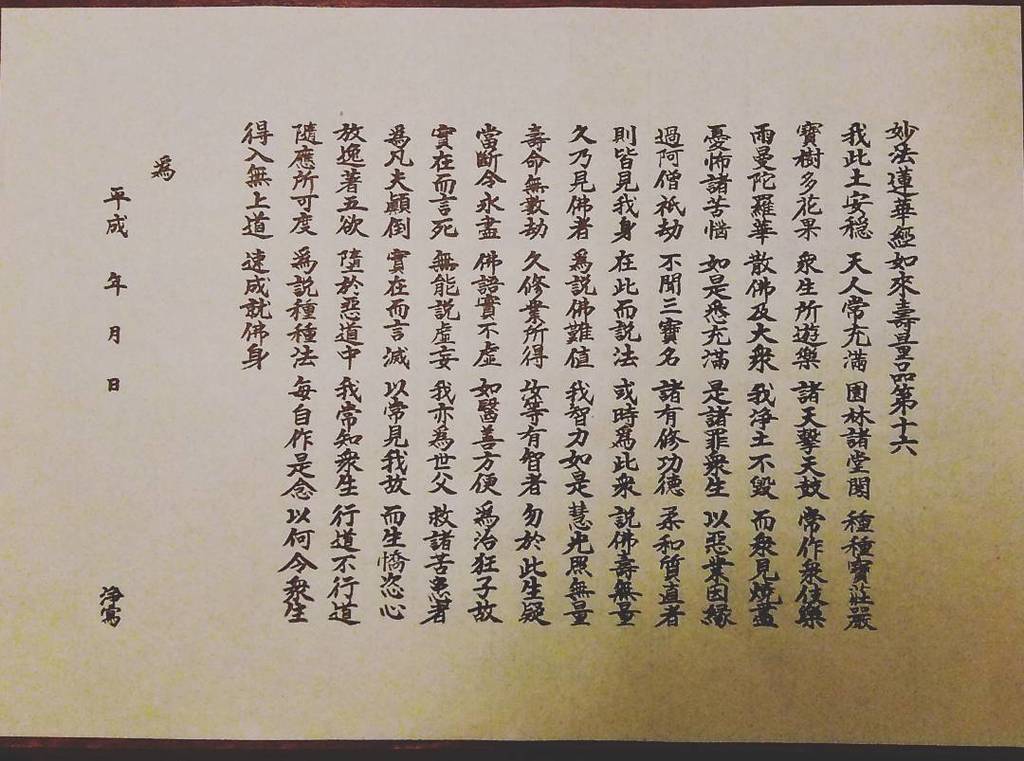 妙法蓮華經如來壽量品第十六
我此土安穏 天人常充滿 園林諸堂閣 種種寶莊嚴
寳樹多花果 衆生所遊樂 諸天擊天鼓 常作衆伎樂
雨曼陀羅華 散佛及大衆 我浄土不毀 而衆見燒盡
憂怖諸苦惱 如是悉充滿 是諸罪衆生 以惡業因緣
過阿僧祇劫 不聞三寶名 諸有修功德 柔和質直者
則皆見我身 在此而說法 或時爲此衆 說佛壽無量
久乃見佛者 爲說佛難值 我智力如是 慧光照無量
壽命無數劫 久修業所得 汝等有智者 勿於此生疑
當斷令永盡 佛語實不虛 如醫善方便 爲治狂子故
實在而言死 無能說虛妄 我亦爲世父 救諸苦患者
爲凡夫顛倒 實在而言滅 以常見我故 而生憍恣心
放逸著五欲 墮於惡道中 我常知衆生 行道不行道
隨應所可度 爲說種種法 每自作是念 以何令衆生
得入無上道 速成就佛身
爲
平成 年 月 日 浄寫